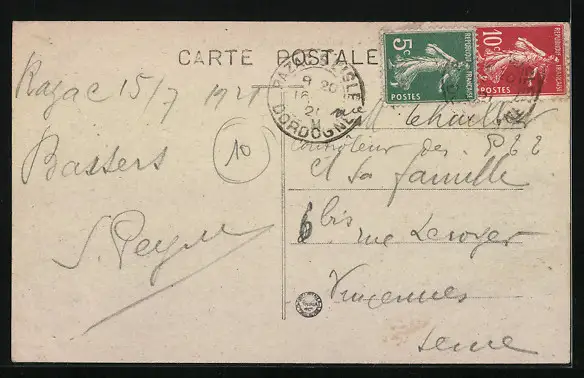 CARTE POSTALE
5c
POSTES
REPUBLIQUE FRANÇAISE
10c
POSTES
REPUBLIQUE FRANÇAISE
RAZAC S L'ISLE
9 20
16
21
DORDOGNE
Razac 15/7 1921
Baisers
10
M
Contrôleur des P T T
et sa famille
6 bis
rue Leroyer
Vincennes
Seine